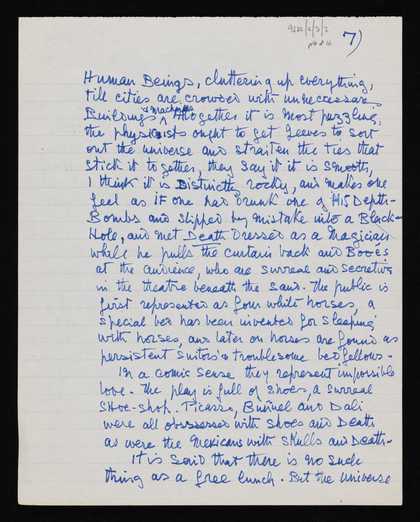 9222/2/3/2
7)
Human Beings, cluttering up everything,
till cities are crowded with unnecessary
Buildings & Altogether it is most puzzling,
the physicists ought to get Jeeves to sort
out the universe and straiten the ties that
stick it together, they say it is smooth,
I think it is Distinctly rocky, and makes one
feel as if one had Drunk one of His Depth-
Bombs and slipped by mistake into a Black-
Hole, and met Death Dressed as a Magician
while he pulls the curtain back and Bows
at the audience, who are surreal and secretive
in the theatre beneath the sand. The public is
first represented as four white horses, a
special bed has been invented for sleeping
with horses, and later on horses are found as
persistent suitors & troublesome bedfellows.
In a comic sense they represent impossible
love. The play is full of shoes, a surreal
shoe-shop. Picasso, Buñuel and Dali
were all obssessed with shoes and Death
as were the Mexicans with skulls and Death-
It is said that there is no such
thing as a free lunch. But the universe